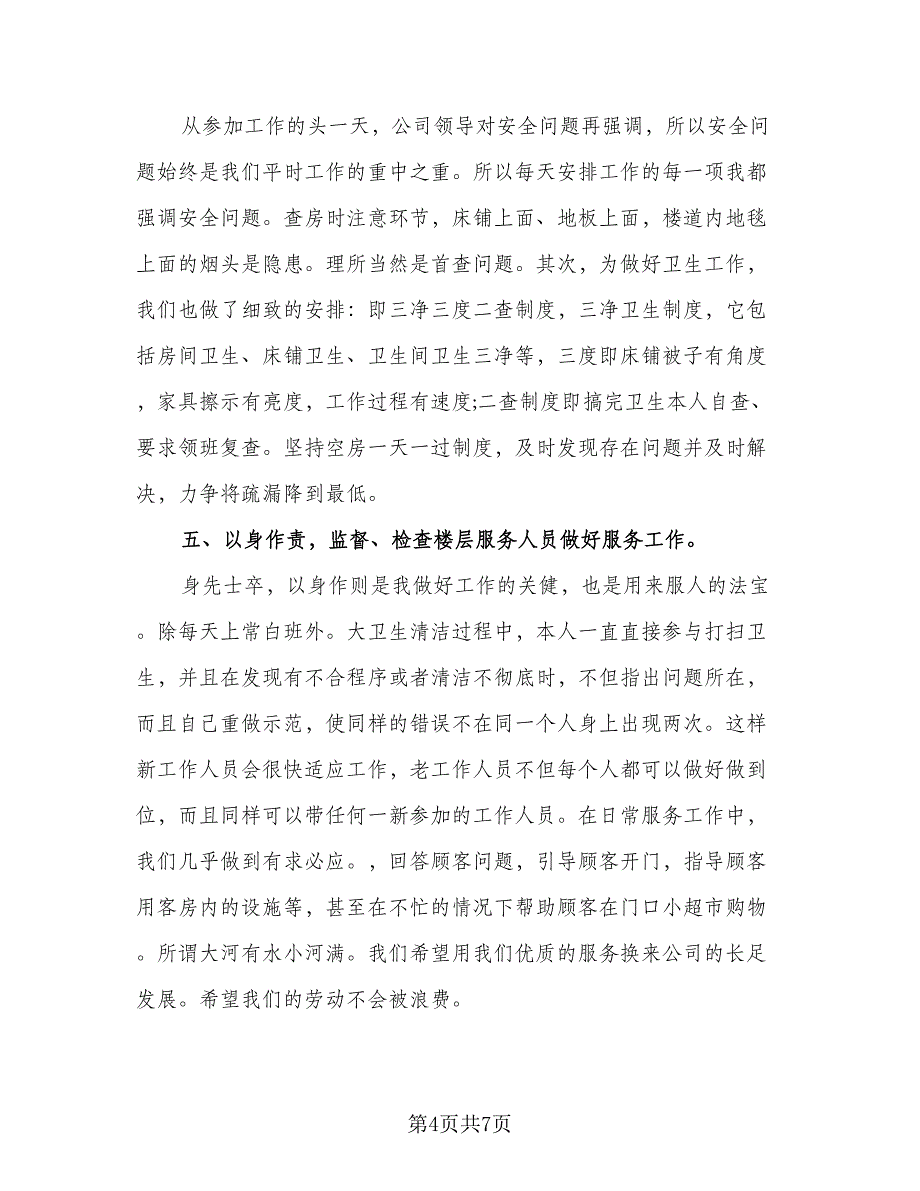 从参加工作的头一天，公司领导对安全问题再强调，所以安全问
题始终是我们平时工作的重中之重。所以每天安排工作的每一项我都
强调安全问题。查房时注意环节，床铺上面、地板上面，楼道内地毯
上面的烟头是隐患。理所当然是首查问题。其次，为做好卫生工作，
我们也做了细致的安排：即三净三度二查制度，三净卫生制度，它包
括房间卫生、床铺卫生、卫生间卫生三净等，三度即床铺被子有角度
，家具擦示有亮度，工作过程有速度;二查制度即搞完卫生本人自查、
要求领班复查。坚持空房一天一过制度，及时发现存在问题并及时解
决，力争将疏漏降到最低。
五、以身作责，监督、检查楼层服务人员做好服务工作。
身先士卒，以身作则是我做好工作的关健，也是用来服人的法宝
。除每天上常白班外。大卫生清洁过程中，本人一直直接参与打扫卫
生，并且在发现有不合程序或者清洁不彻底时，不但指出问题所在，
而且自己重做示范，使同样的错误不在同一个人身上出现两次。这样
新工作人员会很快适应工作，老工作人员不但每个人都可以做好做到
位，而且同样可以带任何一新参加的工作人员。在日常服务工作中，
我们几乎做到有求必应。，回答顾客问题，引导顾客开门，指导顾客
用客房内的设施等，甚至在不忙的情况下帮助顾客在门口小超市购物
。所谓大河有水小河满。我们希望用我们优质的服务换来公司的长足
发展。希望我们的劳动不会被浪费。
第4页共7页